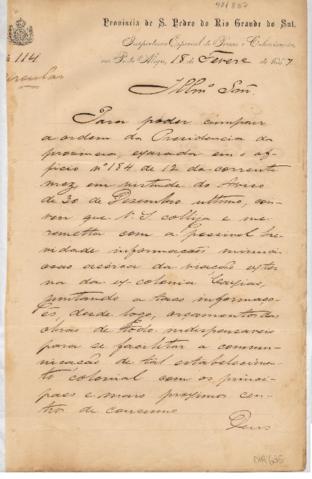 Provincia de S. Pedro do Rio Grande do Sul.
Inspectoria Especial de Terras e Colonisação
em Porto Alegre, 18 de Fevere de 1887
114
Circular
Illmo Snr.
Para poder cumprir
a ordem da Presidencia da
provincia, exarada em o of-
ficio nº 184 de 12 do corrente
mez, em virtude do Aviso
de 30 de Dezembro ultimo, con-
vem que V. S. collija e me
remetta com a possivel bre-
vidade informações minuci-
osas ácerca da viação exter-
na da ex-colonia Caxias,
juntando a taes informaço-
es, desde logo, orçamento das
obras de todo indispensaveis
para se facilitar a commu-
nicação de tal estabelecimen-
to colonial com os princi-
paes e mais proximos cen-
tros de consumo
Deus